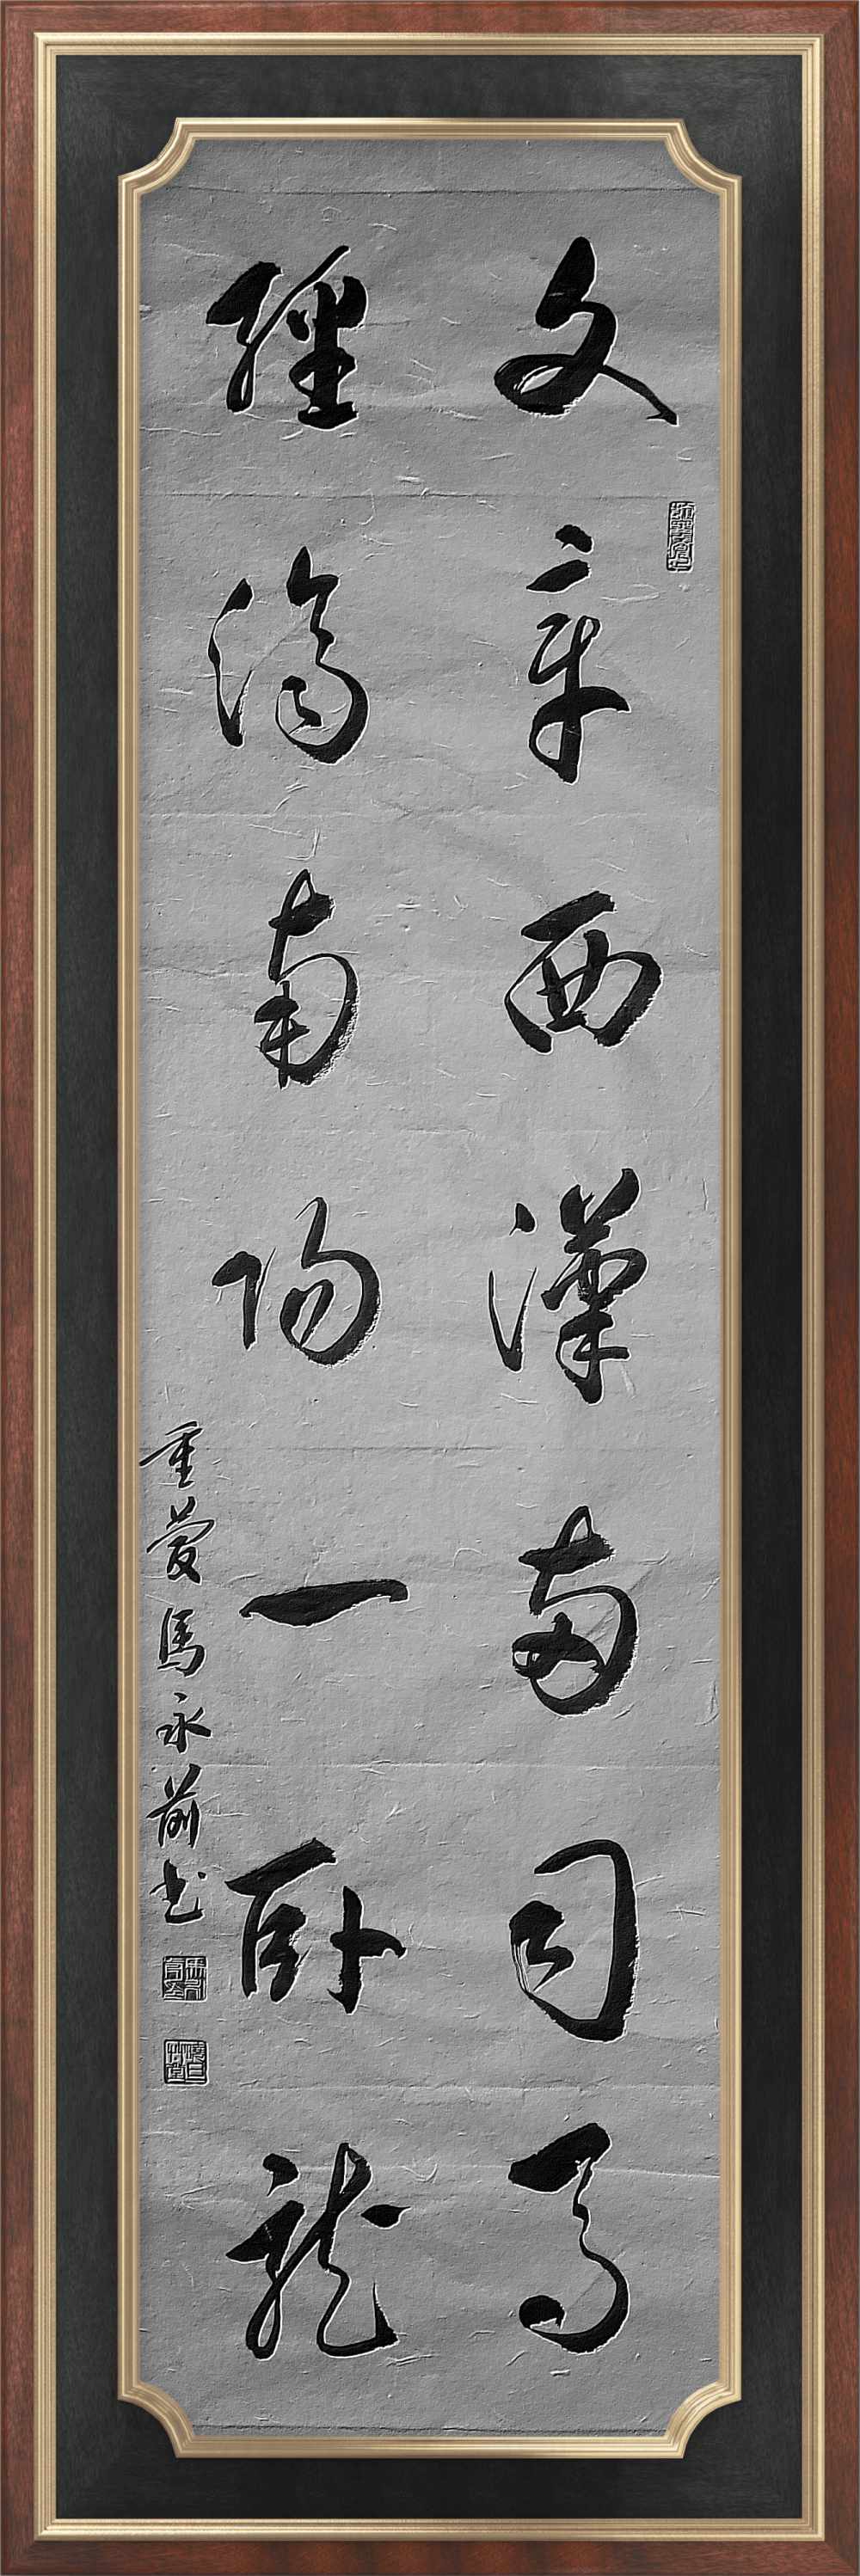 文章西漢兩司馬
經濟南陽一卧龍
重慶馬永前书